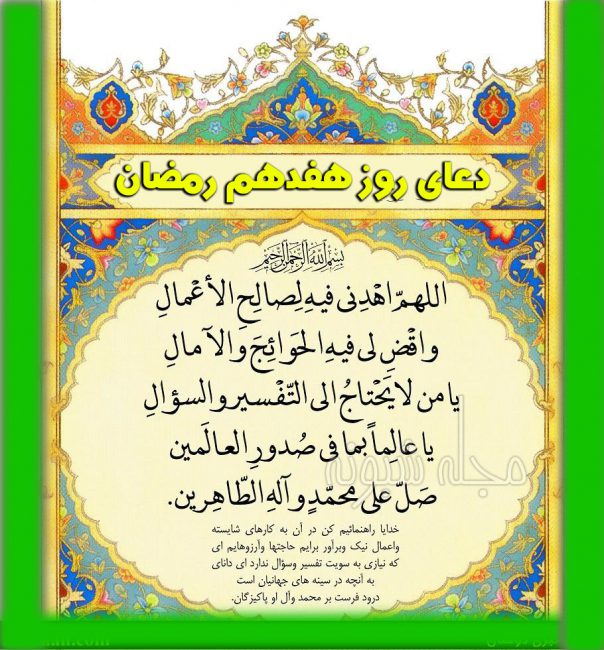 دعای روز هفدهم رمضان
بسم الله الرحمن الرحیم
اللهمّ اهْدِنی فیهِ لِصالِحِ الأعْمالِ
واقْضِ لی فیهِ الحَوائِجَ والآمالِ
یا من لا یَحْتاجُ الی التّفْسیر والسؤالِ
یا عالِماً بما فی صُدورِ العالَمین
صَلّ علی محمّدٍ وآلهِ الطّاهِرین.
خدایا راهنمائیم کن در آن به کارهای شایسته
واعمال نیک وبرآور برایم حاجتها وآرزوهایم ای
که نیازی به سویت تفسیر وسؤال ندارد ای دانای
به آنچه در سینه های جهانیان است
درود فرست بر محمد وآل او پاکیزگان.
مجله شیونه